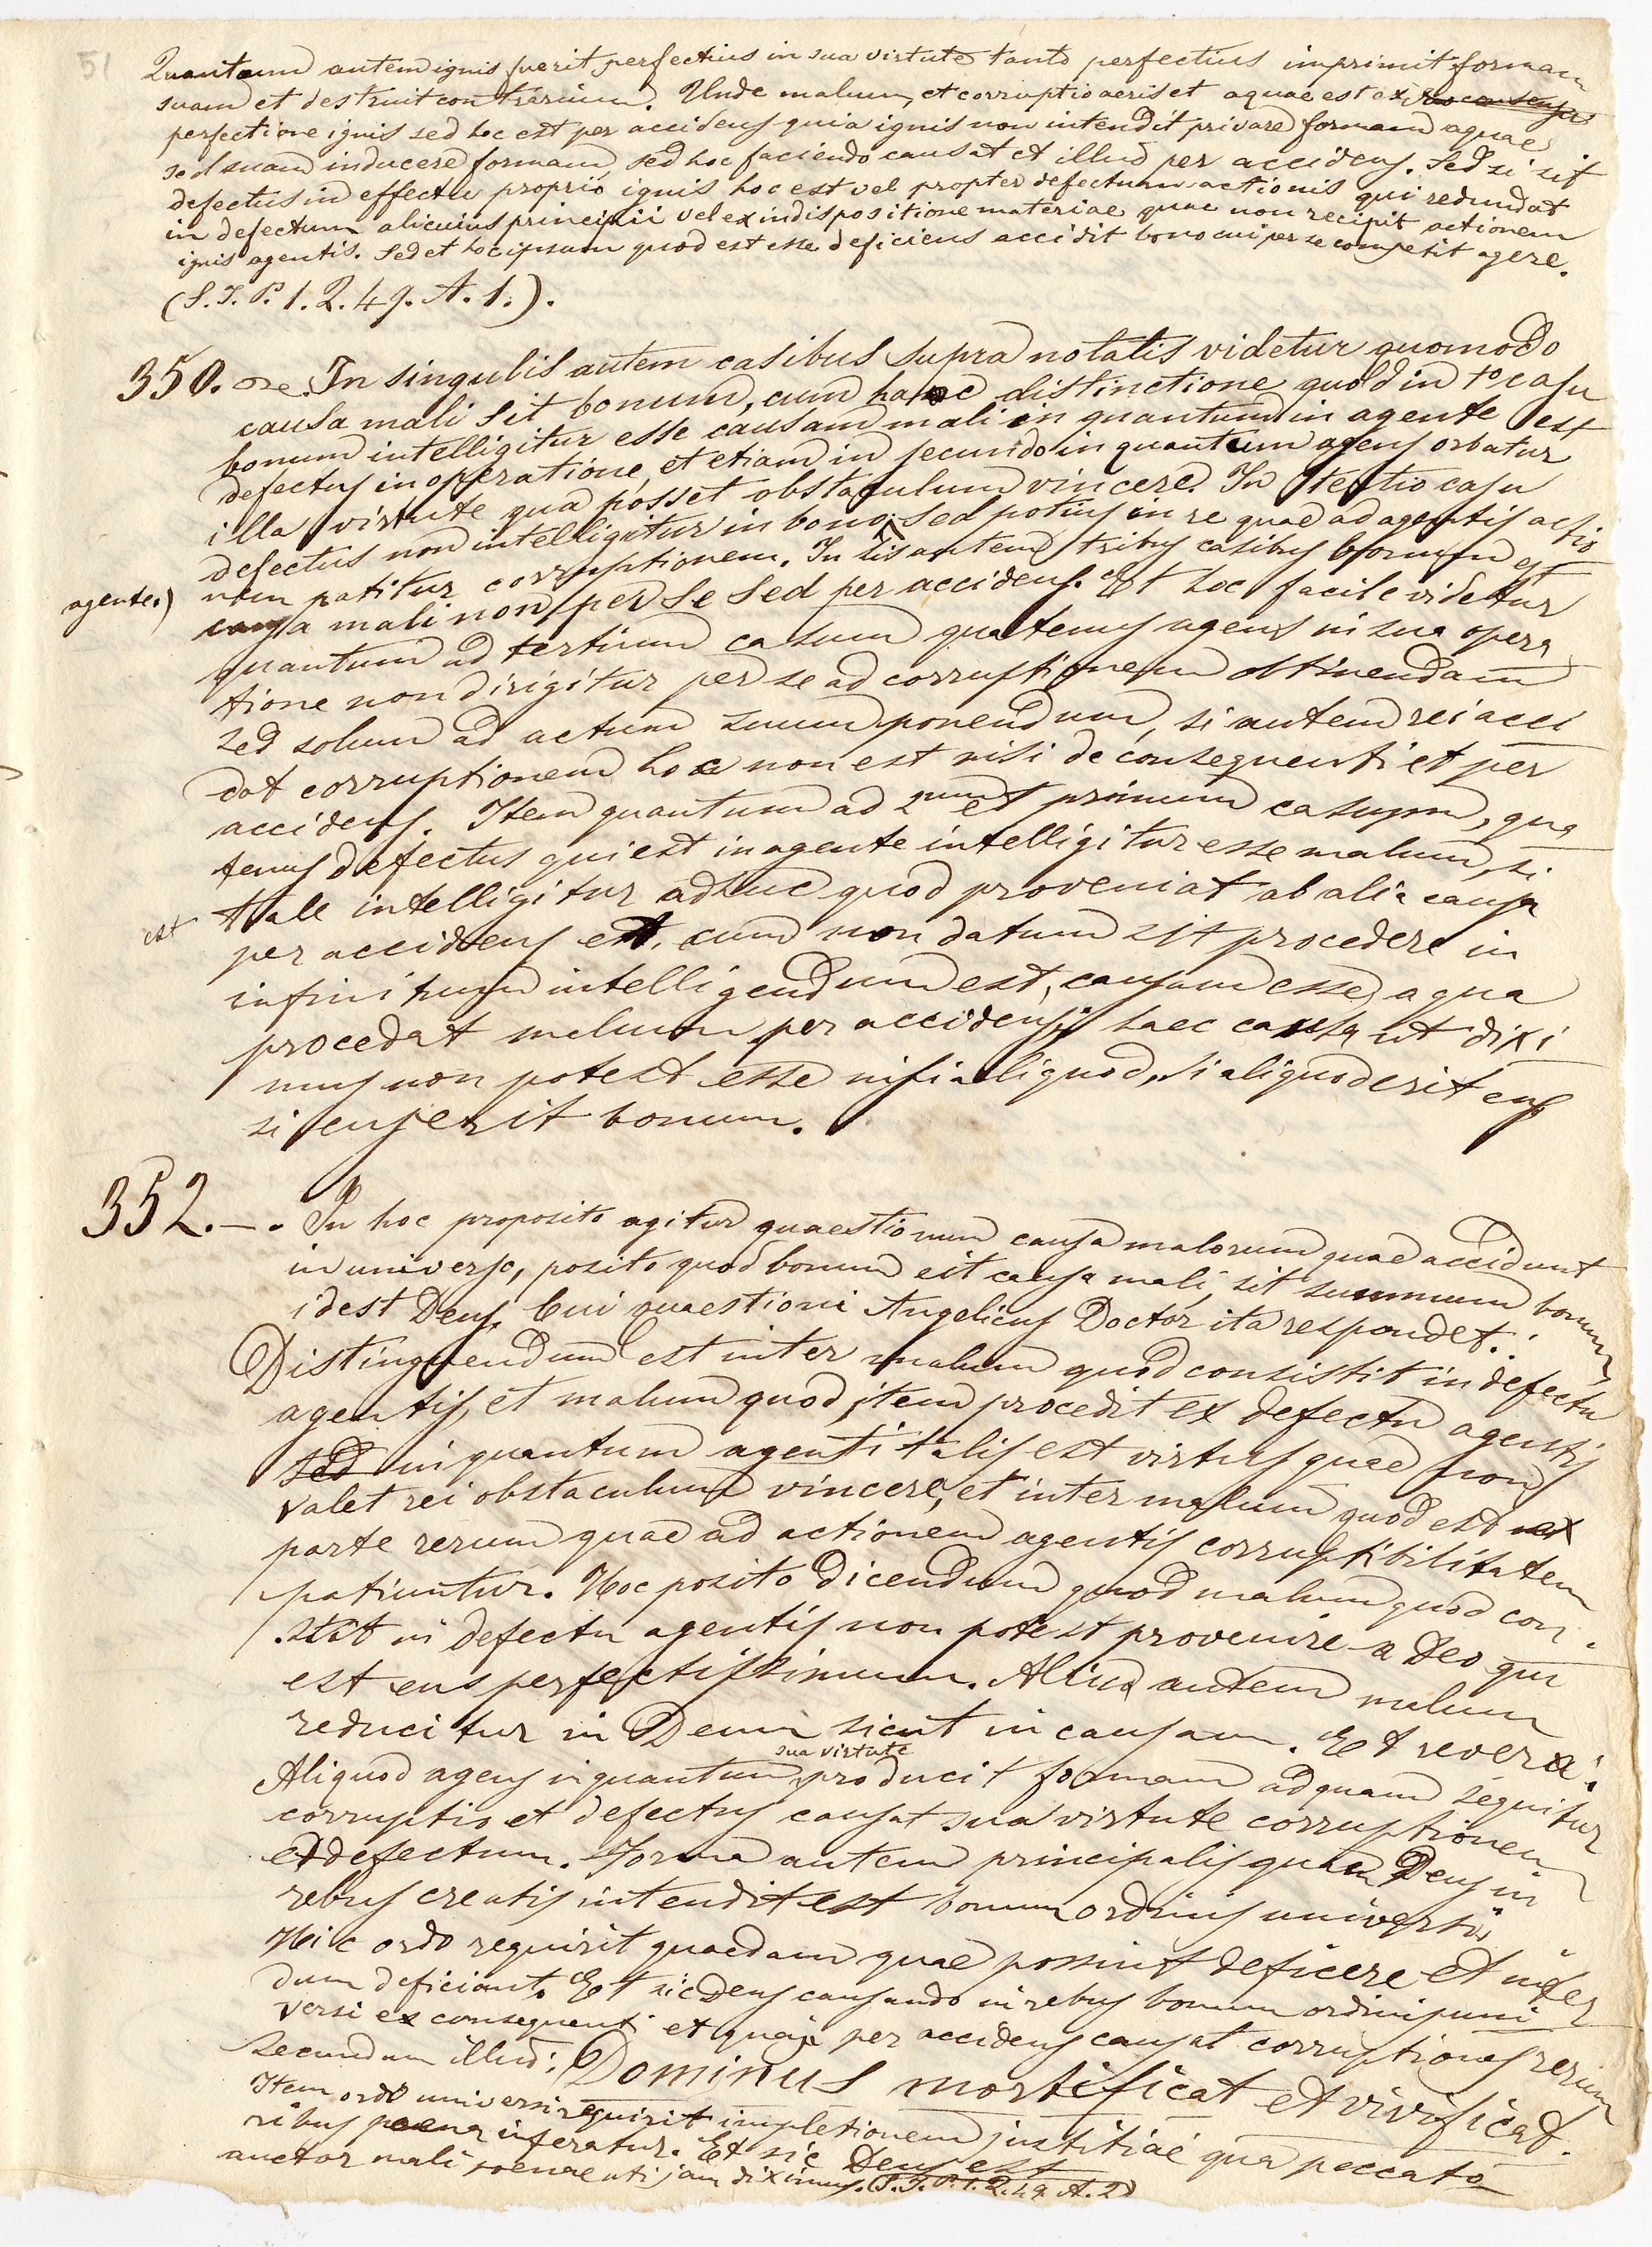 51
Quantum autem ignis fuerit perfectius in sua virtute tanto perfectius imprimit formam
suam et destruit contrarium. Unde malum, et corruptio aeris et aquae est ex
perfectione ignis sed hoc est per accidens quia ignis non intendit privare formam aquae
sed suam inducere formam, sed hoc faciendo causat et illud per accidens. Sed si sit
defectus in effectu proprio ignis hoc est vel propter defectum actionis qui redundat
in defectum alicuius principii vel ex indispositione materiae quae non recipit actionem
ignis agentis. Sed et hoc ipsum quod est esse deficiens accidit bono cui per se competit agere.
(S. T. P. 1. Q. 49. A. 1.).
350. In singulis autem casibus supra notatis videtur quomodo
causa mali sit bonum, cum hanc distinctione quod in 1o casu
bonum intelligitur esse causam mali in quantum in agente est
defectus in operatione, et etiam in secundo in quantum agens orbatur
illa virtute qua posset obstaculum vincere. In tertio casu
defectus non intelligitur in bono sed potius in re quae ad agentis actio
agente.)
nem patitur corruptionem. In his autem tribus casibus bonum est
causa mali non per se sed per accidens. Et hoc facile videtur
quantum ad tertium casum quatenus agens in sua opera
tione non dirigitur per se ad corruptionem obtinendam
sed solum ad actum suum ponendum, si autem rei acci
dat corruptionem hoc non est nisi de consequenti et per
accidens. Item quantum ad 2um et primum casum, qua
tenus defectus qui est in agente intelligitur esse malum, si
tale intelligitur adhuc quod proveniat ab alia causa
est
per accidens est, cum non datum sit procedere in
infinitum intelligendum est, causam esse, a qua
procedat malum per accidens; haec causa ut dixi
mus non potest esse nisi aliquod, si aliquod erit ens
si ens erit bonum.
352. - . In hoc proposito agitur quaestio num causa malorum quae accidunt
in universo, posito quod bonum sit causa mali, sit summum bonum
idest Deus. Cui quaestioni Angelicus Doctor ita respondet:
Distinguendum est inter malum quod consistit in defectu
agentis, et malum quod item procedit ex defectu agentis
sed in quantum agenti talis est virtus quae non
valet rei obstaculum vincere, et inter malum quod est ex
parte rerum quae ad actionem agentis corruptibilitatem
patiuntur. Hoc posito dicendum quod malum quod con
stat in defectu agentis non potest provenire a Deo qui
est ens perfectissimum. Aliud autem malum
reducitur in Deum sicut in causam. Et revera:
sua virtute
Aliquod agens inquantum producit formam ad quam sequitur
corruptio et defectus causat sua virtute corruptionem
et defectum. Forma autem principalis quam Deus in
rebus creatis intendit est bonum ordinis universi.
Hic ordo requirit quaedam quae possint deficere et inter
dum deficiant. Et sic Deus causando in rebus bonum ordinis uni
versi ex consequenti et quasi per accidens causat corruptiones rerum
secundum illud: Dominus mortificat et vivificat.
Item ordo universi requirit impletionem justitiae qua peccato
ribus poena inferatur. Et sic Deus est
auctor mali poenae uti jam diximus. (S. T. P. 1. Q. 49. A. 2)